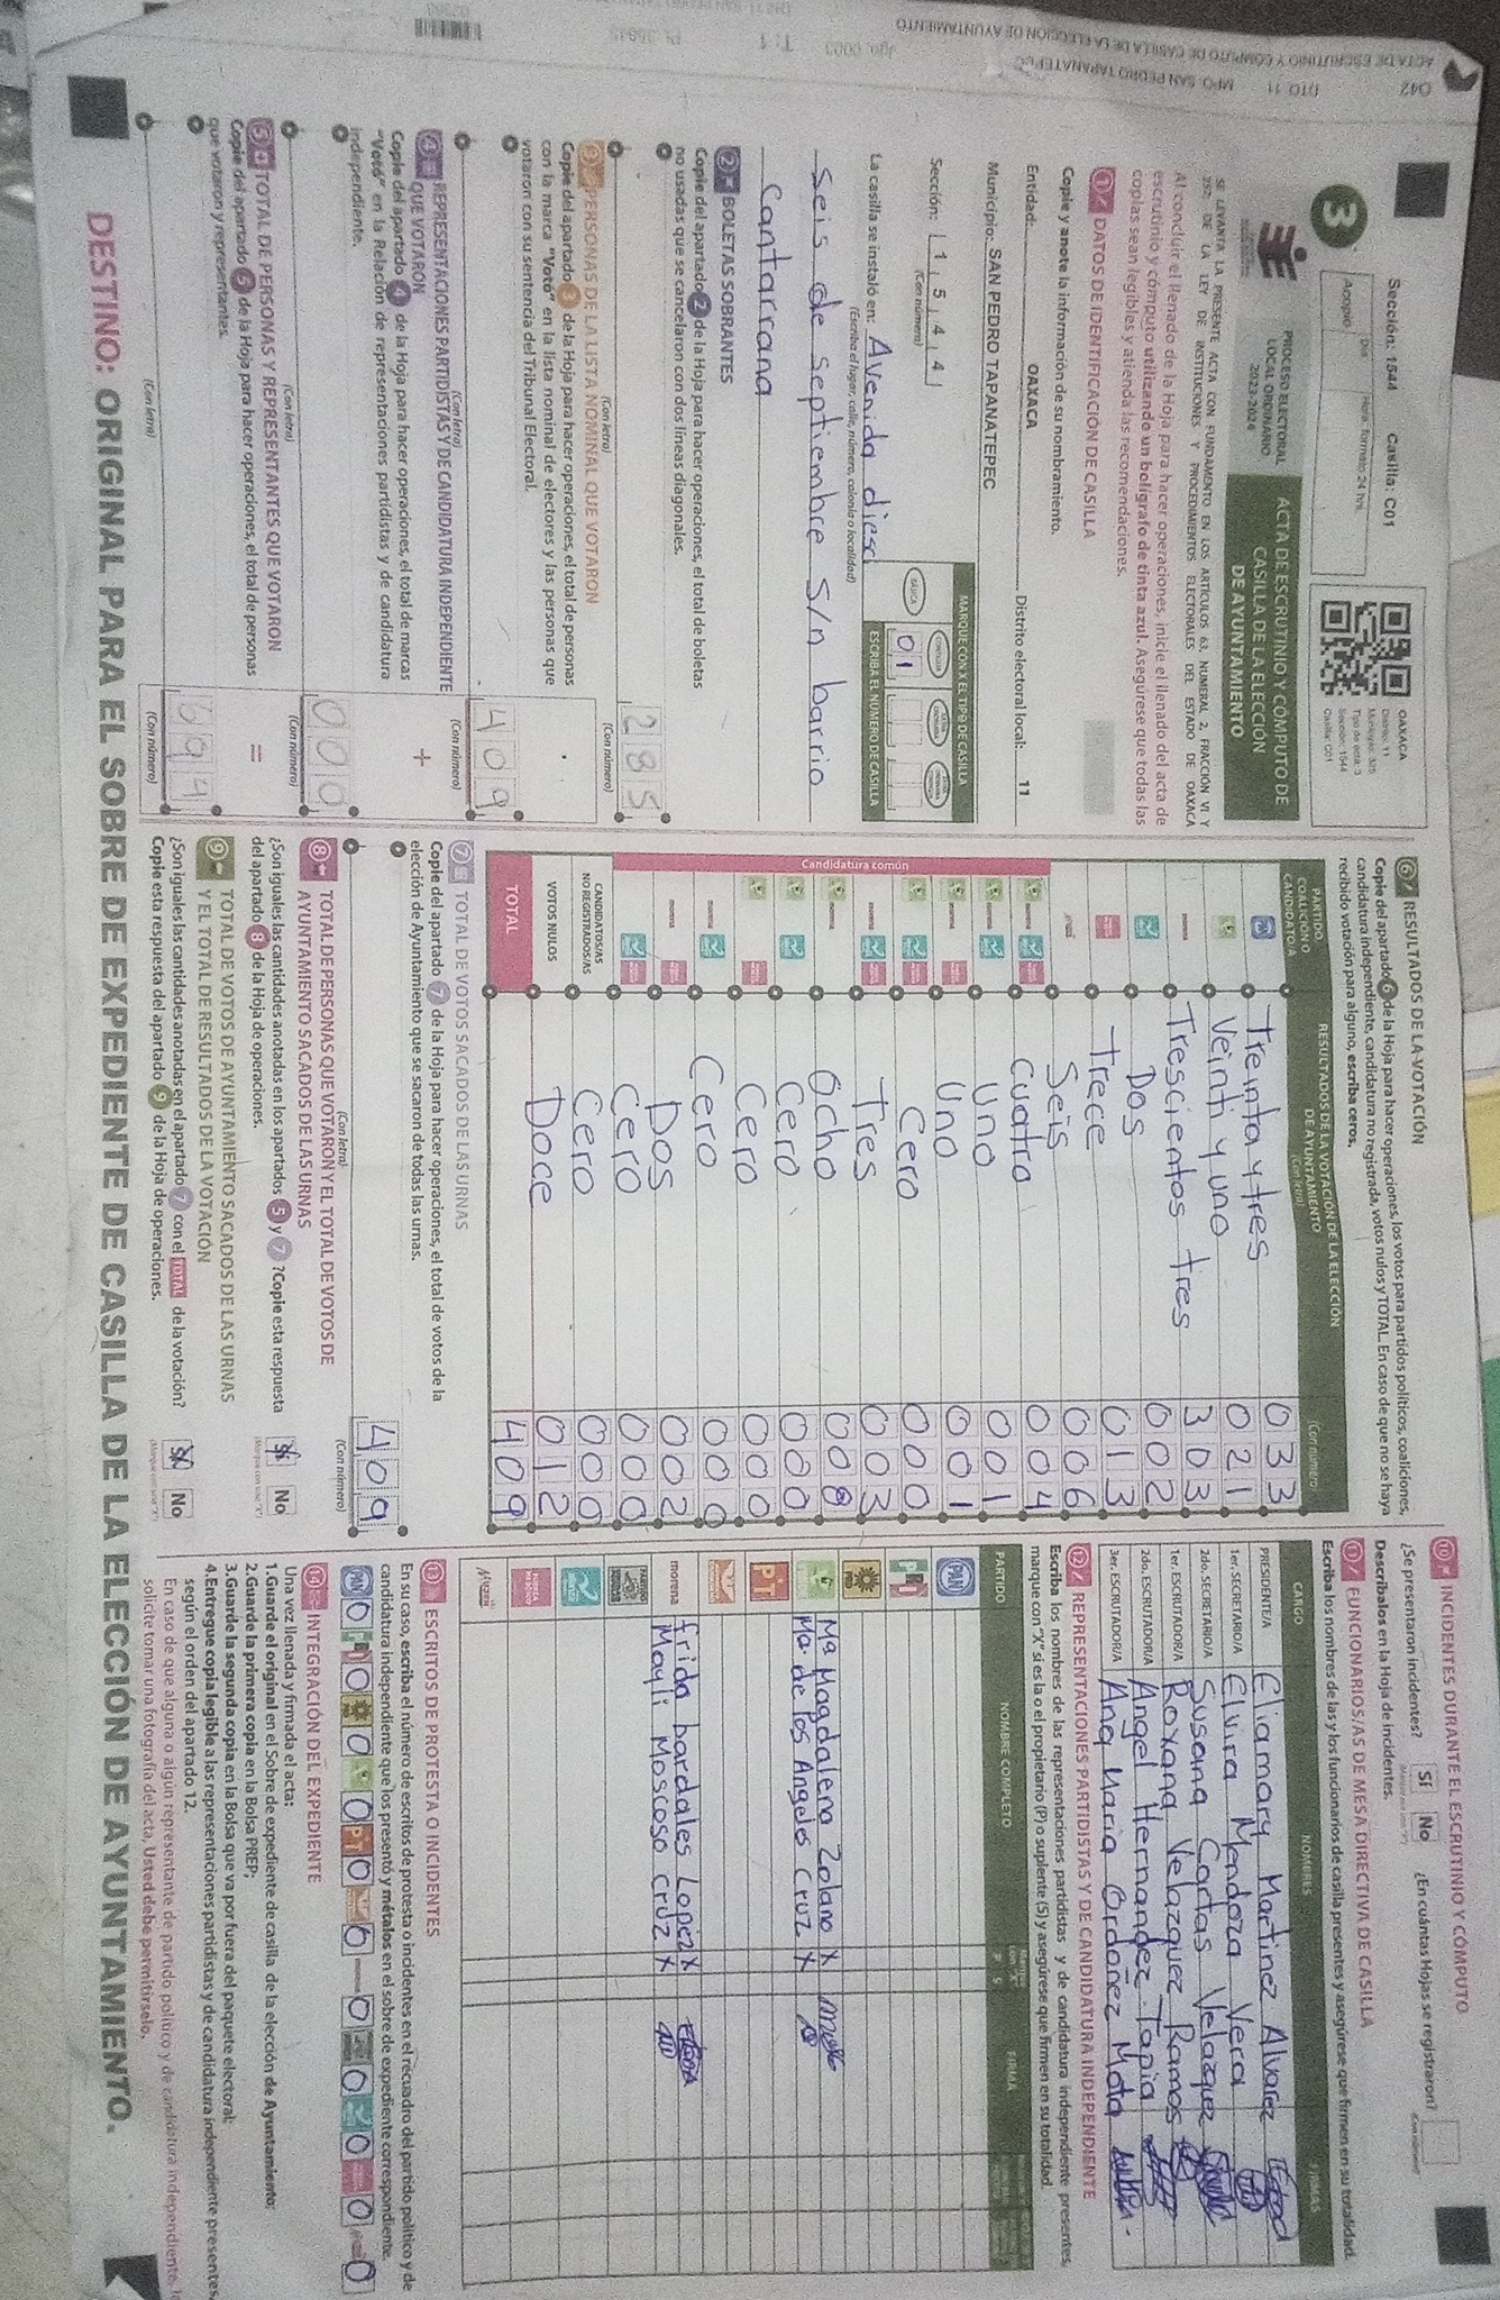 Sección: 1544 Casilla: C01
Acopio
Día
Hora. Formato 24 hrs.
OAXACA
Distrito: 11
Municipio: 325
Tipo de acta: 3
Sección: 1544
Casilla: C01
3
PROCESO ELECTORAL
LOCAL ORDINARIO
2023-2024
ACTA DE ESCRUTINIO Y CÓMPUTO DE
CASILLA DE LA ELECCIÓN
DE AYUNTAMIENTO
SE LEVANTA LA PRESENTE ACTA CON FUNDAMENTO EN LOS ARTÍCULOS 63, NUMERAL 2, FRACCIÓN VI Y
252; DE LA LEY DE INSTITUCIONES Y PROCEDIMIENTOS ELECTORALES DEL ESTADO DE OAXACA
Al concluir el llenado de la Hoja para hacer operaciones, inicie el llenado del acta de
escrutinio y cómputo utilizando un bolígrafo de tinta azul. Asegúrese que todas las
copias sean legibles y atienda las recomendaciones.
1 DATOS DE IDENTIFICACIÓN DE CASILLA
Copie y anote la información de su nombramiento.
Entidad: OAXACA Distrito electoral local: 11
Municipio: SAN PEDRO TAPANATEPEC
Sección: 1 5 4 4
(Con número)
MARQUE CON X EL TIPO DE CASILLA
BÁSICA
01
ESCRIBA EL NÚMERO DE CASILLA
La casilla se instaló en: Avenida diesci
(Escriba el lugar, calle, número, colonia o localidad)
seis de septiembre S/n barrio
Cantarrana
2 BOLETAS SOBRANTES
Copie del apartado 2 de la Hoja para hacer operaciones, el total de boletas
no usadas que se cancelaron con dos líneas diagonales.
285
(Con letra) (Con número)
3 PERSONAS DE LA LISTA NOMINAL QUE VOTARON
Copie del apartado 3 de la Hoja para hacer operaciones, el total de personas
con la marca "Votó" en la lista nominal de electores y las personas que
votaron con su sentencia del Tribunal Electoral.
409
(Con letra) (Con número)
4 REPRESENTACIONES PARTIDISTAS Y DE CANDIDATURA INDEPENDIENTE
QUE VOTARON
+
Copie del apartado 4 de la Hoja para hacer operaciones, el total de marcas
"Votó" en la Relación de representaciones partidistas y de candidatura
independiente.
000
(Con letra) (Con número)
5 TOTAL DE PERSONAS Y REPRESENTANTES QUE VOTARON
=
Copie del apartado 5 de la Hoja para hacer operaciones, el total de personas
que votaron y representantes.
694
(Con letra) (Con número)
6 RESULTADOS DE LA VOTACIÓN
Copie del apartado 6 de la Hoja para hacer operaciones, los votos para partidos políticos, coaliciones,
candidatura independiente, candidatura no registrada, votos nulos y TOTAL. En caso de que no se haya
recibido votación para alguno, escriba ceros.
PARTIDO, COALICIÓN O CANDIDATO/A
RESULTADOS DE LA VOTACIÓN DE LA ELECCIÓN
DE AYUNTAMIENTO
(Con letra) (Con número)
PAN Treinta y tres 033
Veinti y uno 021
morena Trescientos tres 303
Dos 002
Trece 013
Seis 006
Candidatura común
Cuatro 004
Uno 001
Uno 001
Cero 000
Tres 003
Ocho 008
Cero 000
Cero 000
Cero 000
Dos 002
Cero 000
CANDIDATOS/AS NO REGISTRADOS/AS Cero 000
VOTOS NULOS Doce 012
TOTAL 409
7 TOTAL DE VOTOS SACADOS DE LAS URNAS
Copie del apartado 7 de la Hoja para hacer operaciones, el total de votos de la
elección de Ayuntamiento que se sacaron de todas las urnas.
409
(Con letra) (Con número)
8 TOTAL DE PERSONAS QUE VOTARON Y EL TOTAL DE VOTOS DE
AYUNTAMIENTO SACADOS DE LAS URNAS
¿Son iguales las cantidades anotadas en los apartados 5 y 7? Copie esta respuesta
del apartado 8 de la Hoja de operaciones.
Sí No
9 TOTAL DE VOTOS DE AYUNTAMIENTO SACADOS DE LAS URNAS
Y EL TOTAL DE RESULTADOS DE LA VOTACIÓN
¿Son iguales las cantidades anotadas en el apartado 7 con el TOTAL de la votación?
Copie esta respuesta del apartado 9 de la Hoja de operaciones.
Sí No
10 INCIDENTES DURANTE EL ESCRUTINIO Y CÓMPUTO
¿Se presentaron incidentes? Sí No ¿En cuántas Hojas se registraron?
Descríbalos en la Hoja de incidentes.
11 FUNCIONARIOS/AS DE MESA DIRECTIVA DE CASILLA
Escriba los nombres de las y los funcionarios de casilla presentes y asegúrese que firmen en su totalidad.
CARGO NOMBRES FIRMAS
PRESIDENTE/A Eliamary Martinez Alvarez
1er. SECRETARIO/A Elvira Mendoza Vera
2do. SECRETARIO/A Susana Cartas Velazquez
1er. ESCRUTADOR/A Roxana Velazquez Ramos
2do. ESCRUTADOR/A Angel Hernandez Tapia
3er. ESCRUTADOR/A Ana Maria Ordoñez Mota
12 REPRESENTACIONES PARTIDISTAS Y DE CANDIDATURA INDEPENDIENTE
Escriba los nombres de las representaciones partidistas y de candidatura independiente presentes,
marque con "X" si es la o el propietario (P) o suplente (S) y asegúrese que firmen en su totalidad.
PARTIDO NOMBRE COMPLETO P S FIRMA
PAN
PRI
PRD
Mª Magdalena Zolano X
Ma. de los Angeles Cruz X
PT
morena frida bardales Lopez X
Mayli Moscoso Cruz X
13 ESCRITOS DE PROTESTA O INCIDENTES
En su caso, escriba el número de escritos de protesta o incidentes en el recuadro del partido político y de
candidatura independiente que los presentó y métalos en el sobre de expediente correspondiente.
PAN 0 PRI 0 PRD 0 0 PT 0 0 0 0 0 0 0
14 INTEGRACIÓN DEL EXPEDIENTE
Una vez llenada y firmada el acta:
1. Guarde el original en el Sobre de expediente de casilla de la elección de Ayuntamiento;
2. Guarde la primera copia en la Bolsa PREP;
3. Guarde la segunda copia en la Bolsa que va por fuera del paquete electoral;
4. Entregue copia legible a las representaciones partidistas y de candidatura independiente presentes,
según el orden del apartado 12.
En caso de que alguna o algún representante de partido político y de candidatura independiente, le
solicite tomar una fotografía del acta, Usted debe permitírselo.
DESTINO: ORIGINAL PARA EL SOBRE DE EXPEDIENTE DE CASILLA DE LA ELECCIÓN DE AYUNTAMIENTO.
042 DTO. 11 MPO. SAN PEDRO TAPANATEPEC
ACTA DE ESCRUTINIO Y CÓMPUTO DE CASILLA DE LA ELECCIÓN DE AYUNTAMIENTO